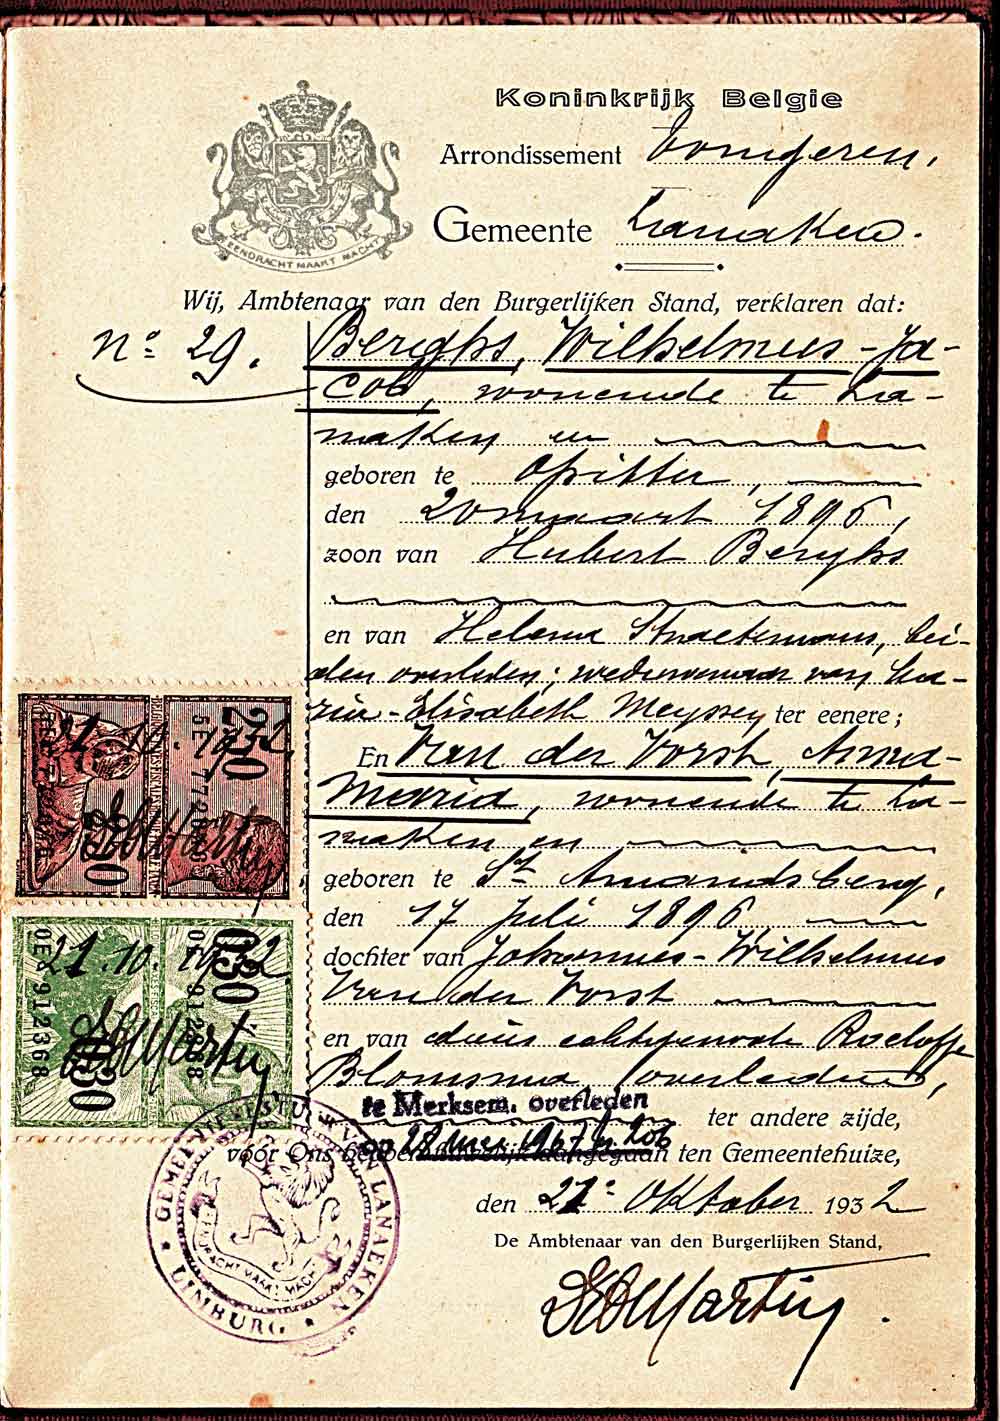 Koninkrijk Belgie
Arrondissement Tongeren.
Gemeente Lanaken.
EENDRACHT MAAKT MACHT
Wij, Ambtenaar van den Burgerlijken Stand, verklaren dat:
No 29.
Berghs, Wilhelmus-Ja-
cob, wonende te La-
naken en
geboren te Opitter,
den 20 maart 1896,
zoon van Hubert Berghs
en van Helena Straetemans, bei-
den overleden; weduwnaar van Ma-
ria-Elisabeth Meyssen, ter eenere;
En Van der Vorst, Anna-
Maria, wonende te La-
naken en
geboren te St Amandsberg,
den 17 Juli 1896
dochter van Johannes-Wilhelmus
Van der Vorst
en van diens echtgenoote Roeloffje
Blomsma (overledene),
te Merksem. overleden
ter andere zijde,
op 28 1967 206
vóór Ons hebben huwelijk aangegaan ten Gemeentehuize,
den 21e Oktober 1932
De Ambtenaar van den Burgerlijken Stand,
Martin
21.10.1932
2F50
21.10.1932
0F30
OE 912368
GEMEENTEBESTUUR VAN LANAEKEN
LIMBURG
EENDRACHT MAAKT MACHT